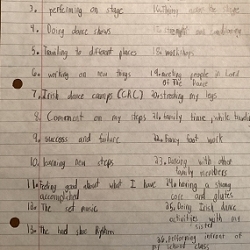 3. performing on stage
4. Doing dance shows
5. Traveling to different places
6. working on new things
7. Irish dance camps (CRC)
8. Comment on my steps
9. success and failure
10. learning new steps
11. Feeling good about what I have
accomplished
12. The set music
13. The hard shoe Rythm
17. strength and
18. workshops
19. meeting people in
of the dance
20. stretching my legs
21. family time while
22. Fancy foot work
23. Dancing with other
family members
24. having a strong
core and
25. Doing Irish dance
activities with my
sister
26. Following interest of